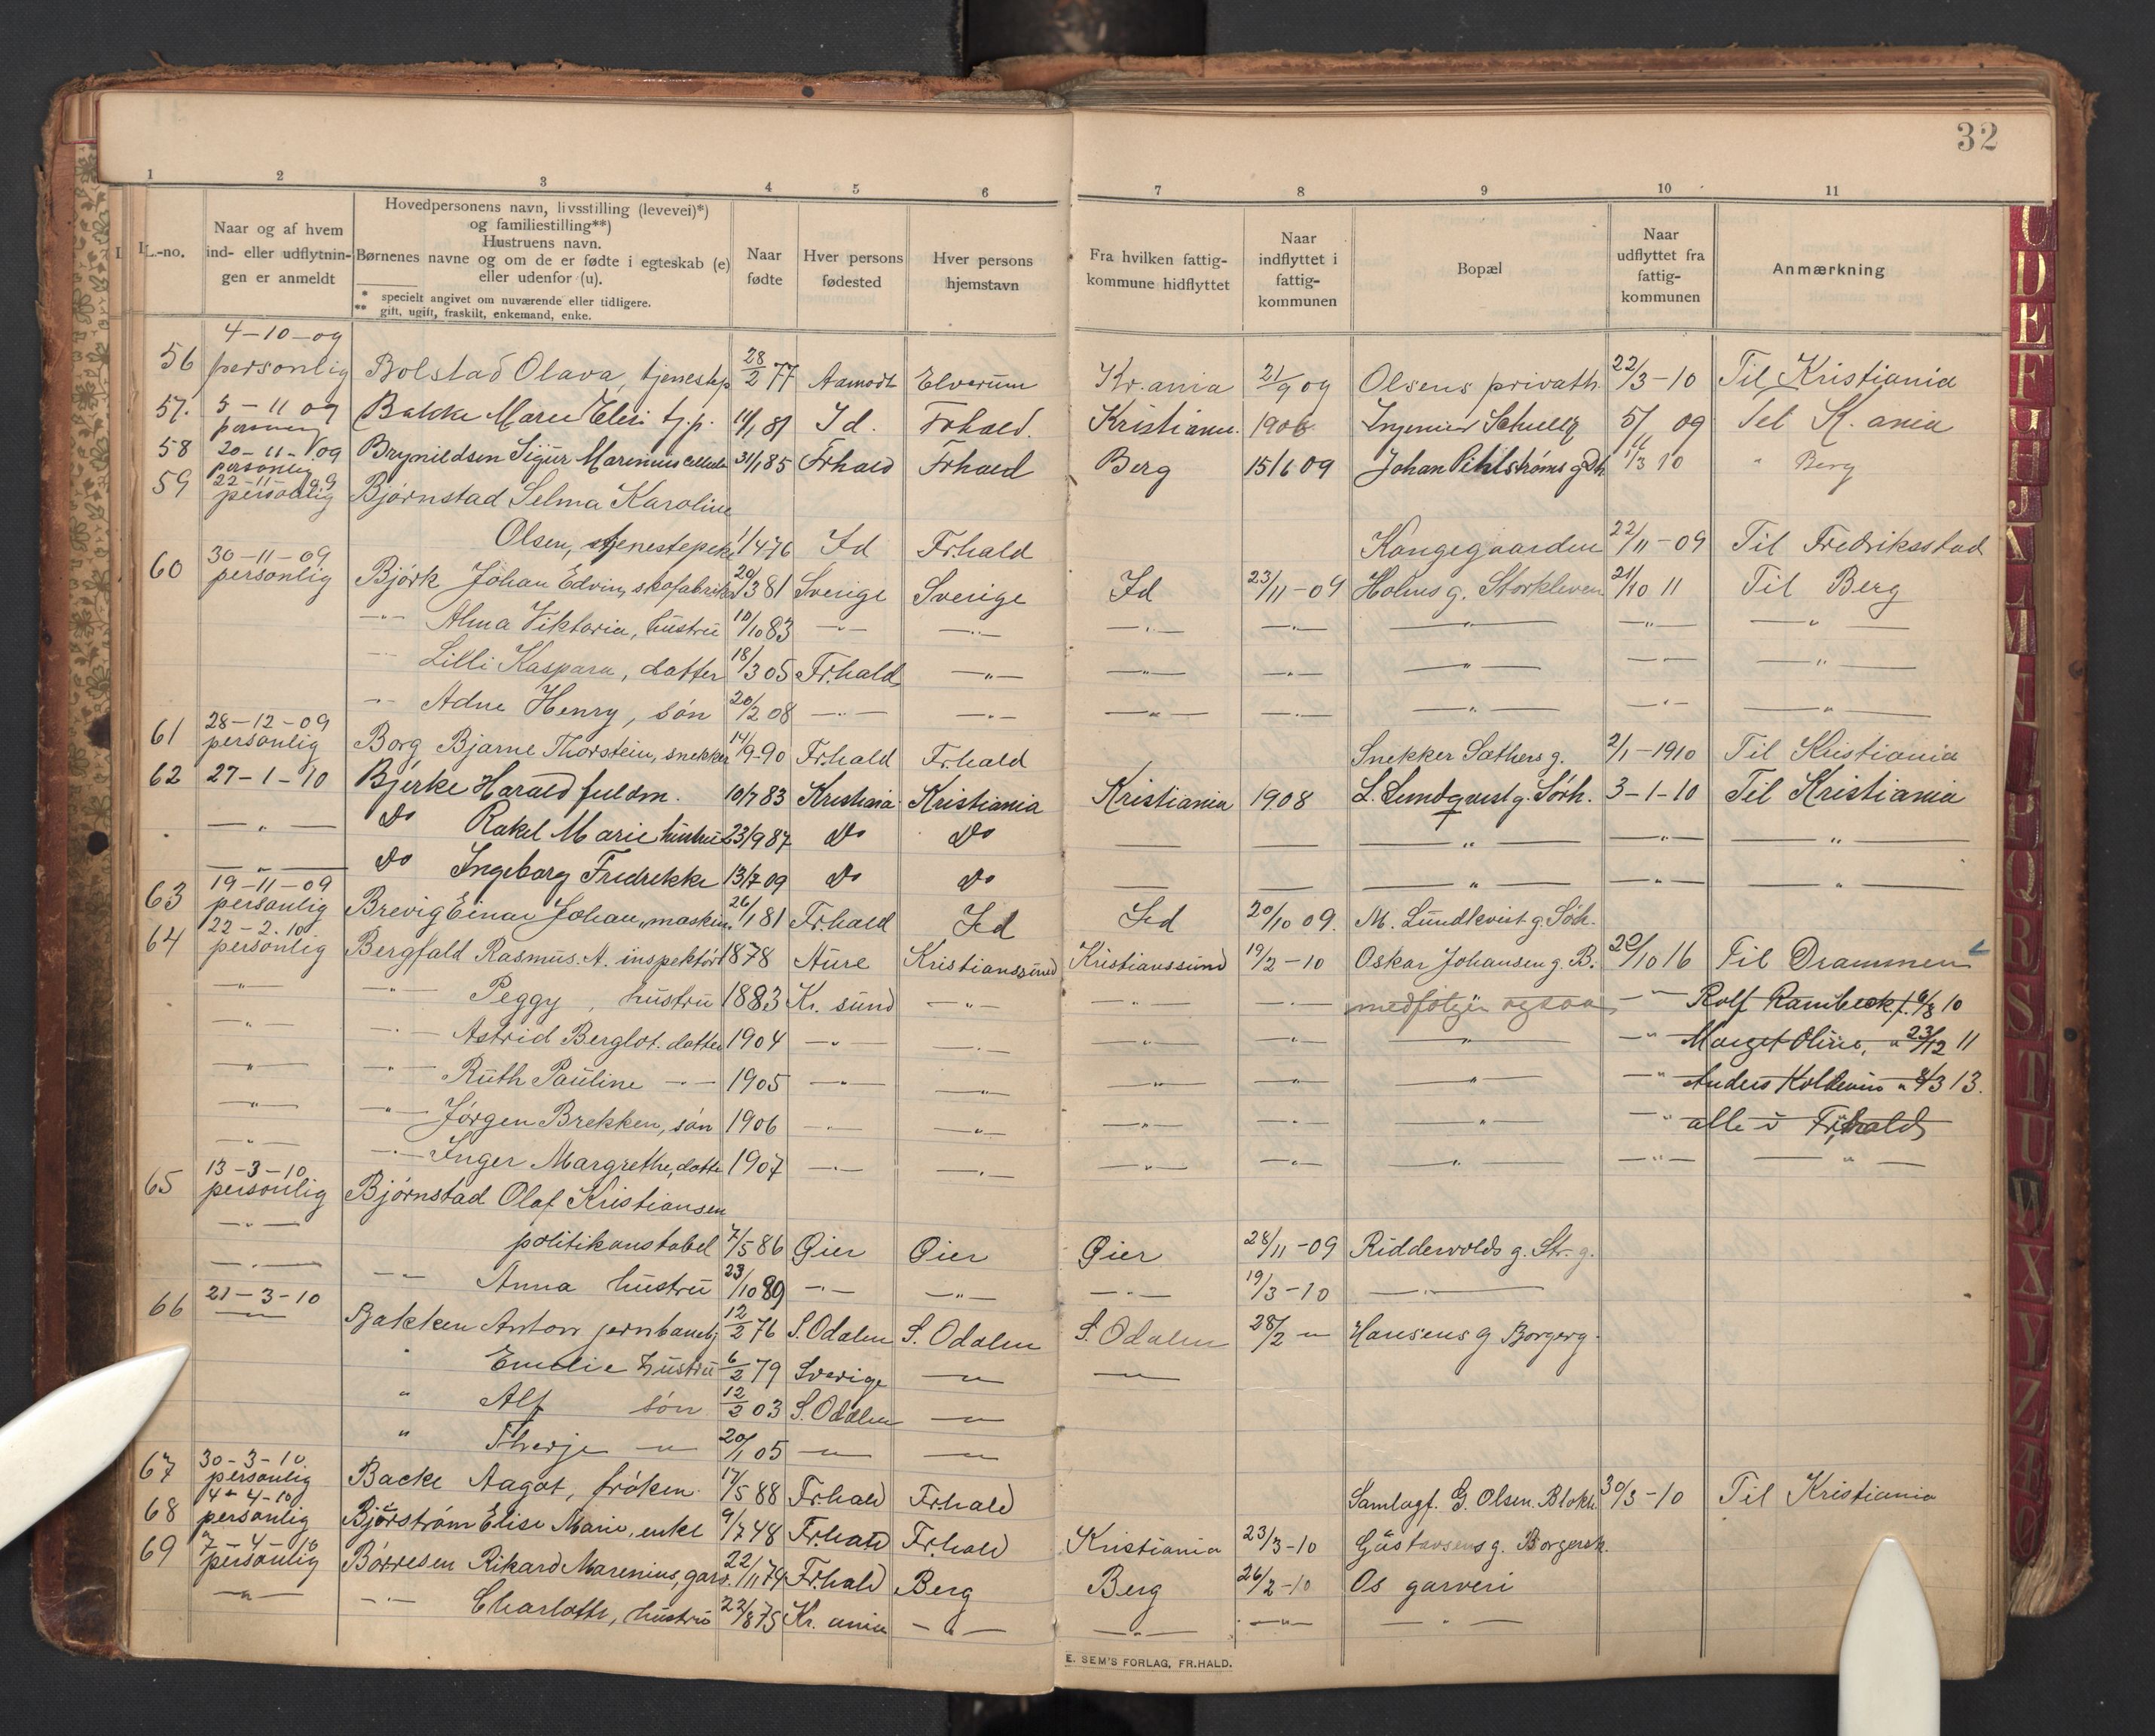 32
1 2 3 4 5 6 7 8 9 10 11
L.-no.
Naar og af hvem ind- eller udflytnin-gen er anmeldt
Hovedpersonens navn, livsstilling (levevei)*)
og familiestilling**)
Hustruens navn.
Børnenes navne og om de er fødte i egteskab (e)
eller udenfor (u).
* specielt angivet om nuværende eller tidligere.
** gift, ugift, fraskilt, enkemand, enke.
Naar fødte
Hver persons fødested
Hver persons hjemstavn
Fra hvilken fattig-kommune hidflyttet
Naar indflyttet i fattig-kommunen
Bopæl
Naar udflyttet fra fattig-kommunen
Anmærkning
56 4-10-09 personlig Bolstad Olava, tjenestep 28/2 77 Aamodt Elverum Kr.ania 21/9 09 Olsens privath. 22/3-10 Til Kristiania
57. 5-11 09 Bakke Marie Elisi tj.p. 81 Id. Frhald. Kristiania. 1906 Ingeniør 5/11 09 Til K.ania
58 20-11-09 personlig Brynildsen Sigur Marinius 31/1 85 Frhald Frhald Berg 15/6 09 Johan Pihlstrøms g. 1/3 10 " Berg
59 22-11-09 personlig Bjørnstad Selma Karoline
Olsen, tjenestepike 1/4 76 Id Fr.hald Kongegaarden 22/11-09 Til Fredriksstad
60 30-11-09 personlig Bjørk Johan Edvin, skofabrik 20/3 81 Sverige Sverige Id 23/11-09 Holms g. Storkleven 21/10 11 Til Berg
-"- Alma Viktoria, hustru 10/10 83 -"- -"- -"- -"- -"- -"- -"-
-"- Lilli Kaspara, datter 18/3 05 Fr.hald -"- -"- -"- -"- -"- -"-
-"- Adne Henry, søn 20/2 08 -"- -"- -"- -"- -"- -"- -"-
61 28-12-09 personlig Borg Bjarne Thorstein, snekker 14/9-90 Fr.hald Fr.hald Snekker Sathers g. 2/1-1910 Til Kristiania
62 27-1-10 Bjerke Harald fuldm. 10/7 83 Kristiania Kristiania Kristiania 1908 L. Lundqvist g. Sørh. 3-1-10 Til Kristiania
-"- Do Rakel Marie hustru 23/9 87 Do Do — — -"- -"- -"-
-"- Do Ingeborg Fredrekke 13/7 09 Do Do — — -"- -"- -"-
63 19-11-09 personlig Brevig Einar Johan, maskin. 26/1 81 Fr.hald Id Id 20/10 09. M. Lundkvist g. Søh.
64 22-2.10 personlig Bergfald Rasmus. A. inspektør 1878 Aure Kristianssund Kristianssund 19/2-10 Oskar Johansen g. B. 20/10 16 Til Drammen
-"- -"- Peggy, hustru 1883 Kr. sund -"- -"- -"- medfølger ogsaa -"- Rolf Rambeck f. 6/8 10
-"- -"- Astrid Bergliot. datter 1904 -"- -"- -"- -"- -"- -"- Marget Oline, " 23/12 11
-"- -"- Ruth Pauline -"- 1905 -"- -"- -"- -"- -"- -"- Anders " 8/3 13.
-"- -"- Jørgen Brekken, søn 1906 -"- -"- -"- -"- -"- -"- alle i Frhald
-"- -"- Inger Margrethe, datte 1907 -"- -"- -"- -"- -"- -"- -"-
65 13-3-10 personlig Bjørnstad Olaf Kristiansen
-"- politikonstabel 7/5 86 Øier Øier Øier 28/11-09 Riddervolds g. Str. g.
-"- -"- Anna hustru 23/10 89 -"- -"- -"- 19/3-10 -"-
66 21-3-10 -"- Bakken Anton jernbanebtj 12/2 76 S. Odalen S. Odalen S. Odalen 28/2 -"- Hansens g Borgerg.
" Emelie hustru 6/2 79 Sverige -"- -"-
" Alf søn 12/2 03 S. Odalen -"-
" Therje -"- 20/1 05 -"- -"-
67 30-3-10. personlig Backe Aagot, frøken. 17/5 88 Fr.hald Fr.hald Samlagf. G. Olsen. Blokh. 30/3-10 Til Kristiania
68 4-4-10 personlig Bjørstrøm Elise Marie, enke 9/7 48 Fr.hald Fr.hald Kristiania 23/3-10 Gustavsens g. Borgersk.
69 7-4-10 personlig Børresen Rikard Marenius, garv. 22/11 74 Fr.hald Berg Berg 26/2-10 Os garveri
-"- -"- Charlotte, hustru 22/8 75 Kr. ania -"- -"- -"- -"-
E. SEM'S FORLAG, FR.HALD.
C D E F G H J K L M N O P Q R S T U W X Y Z Æ Ø